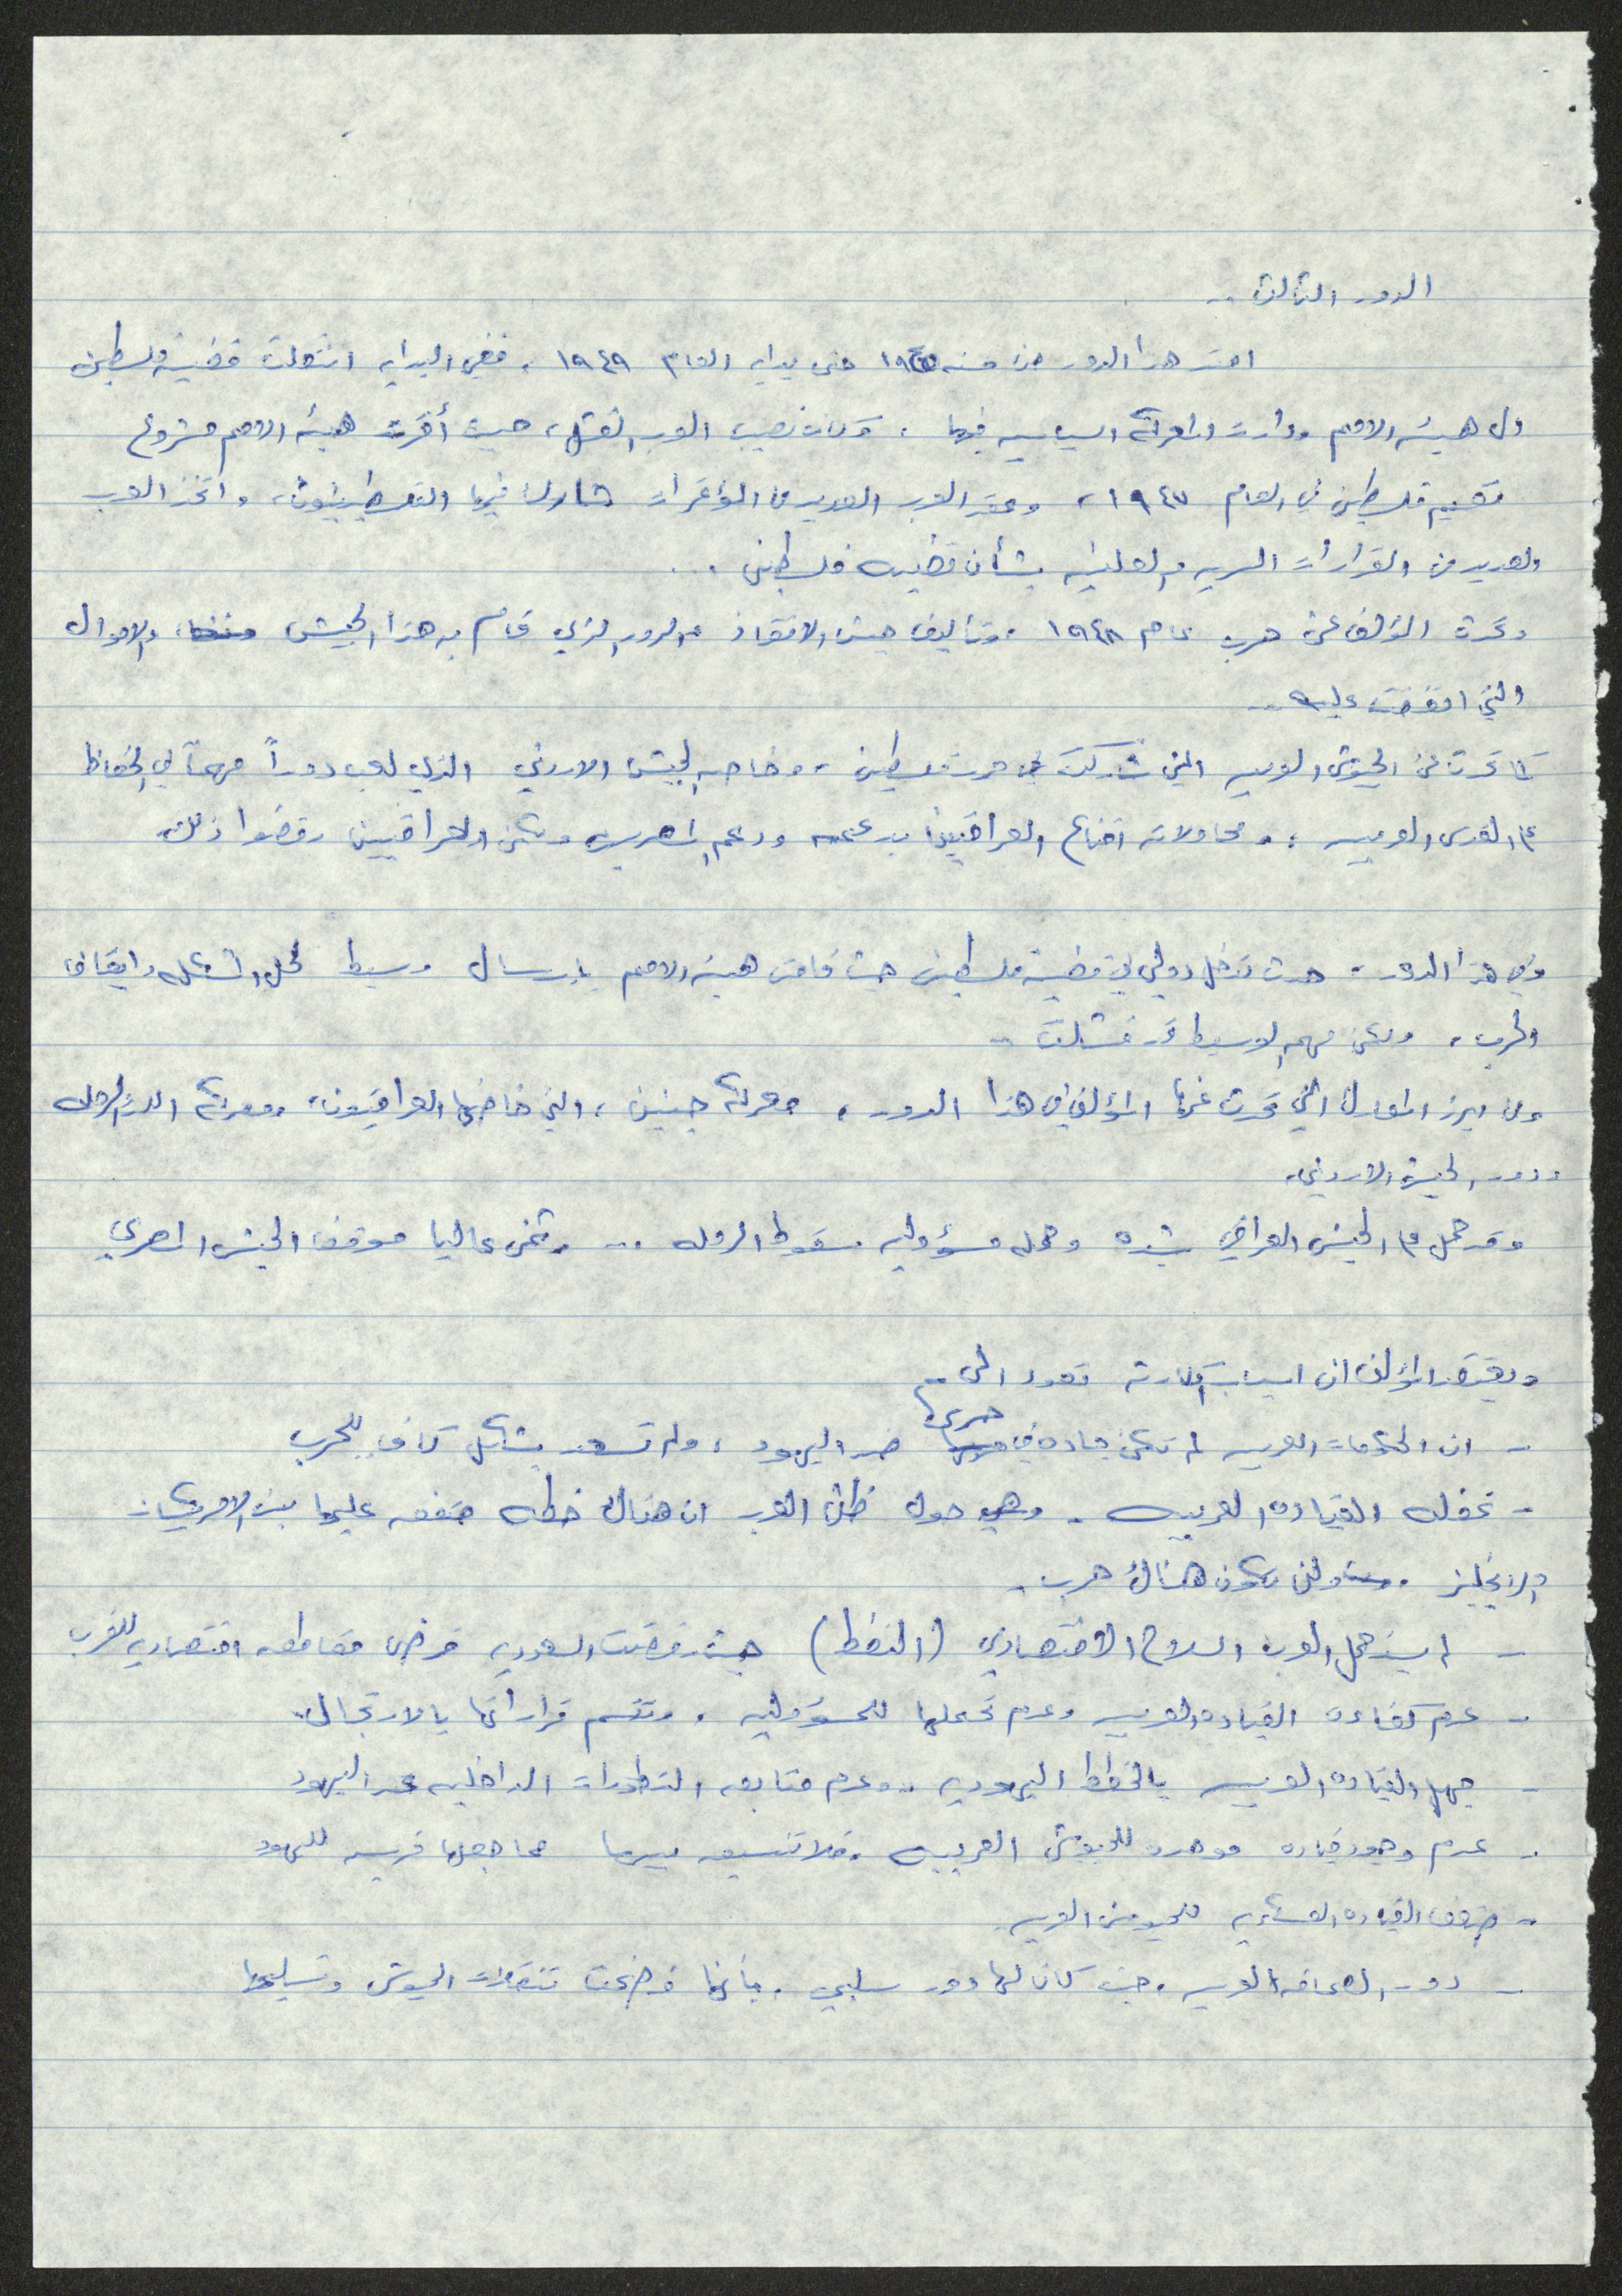 الدور الثالث ..
امتد هذا الدور من سنه ١٩٤٥ حتى بدايه العام ١٩٤٩ ، ففي البدايه انتقلت قضية فلسطين
الى هيئه الامم ودارت المعركه السياسيه فيها ، وكان نصيب العرب الفشل ، حيث أقرت هيئه الامم مشروع
تقسيم فلسطين في العام ١٩٤٧ ، وعقد العرب العديد من المؤتمرات شارك فيها الفلسطينيون ، واتخذ العرب
العديد من القرارات السريه والعلنيه بشأن قضيه فلسطين ...
وتحدث المؤلف عن حرب عام ١٩٤٨ ، وتأليف جيش الانقاذ والدور الذي قام به هذا الجيش والاموال
التي انفقت عليه ..
كما تحدث عن الجيوش العربيه التي شاركت في حرب فلسطين ، وخاصه الجيش الاردني الذي لعب دوراً مهماً في الحفاظ
على القدس العربيه ، ومحاولاته اقناع العراقيين بدعمه ودعم المصريين ولكن العراقيين رفضوا ذلك
وفي هذا الدور ، حدث تدخل دولي في قضية فلسطين حيث قامت هيئه الامم بإرسال وسيط لحل المشكله وايقاف
الحرب ، ولكن مهمه الوسيط قد فشلت ..
ومن ابرز المعارك التي تحدث عنها المؤلف في هذا الدور ، معركه جنين ، التي خاضها العراقيون ، ومعركه اللد والرمله
ودور الجيش الاردني.
وقد حمل على الجيش العراقي بشده وحمله مسؤوليه سقوط الرمله ... وثمن عاليا موقف الجيش المصري
ويعتقد المؤلف ان اسباب الكارثه تعود الى :
- ان الحكومات العربيه لم تكن جاده في حربها ضد اليهود ، ولم تستعد بشكل كاف للحرب
- غفله القياده العربيه . وهي حول ظن العرب ان هناك خطه متفقه عليها بين الامريكان
والانجليز . ولن يكون هناك حرب .
- لم يستعمل العرب السلاح الاقتصادي (النفط) حيث رفضت السعوديه فرض مقاطعه اقتصاديه للغرب
- عدم كفاءه القياده العربيه وعدم تحملها للمسؤوليه ، وتتسم قراراتها بالارتجال.
- جهل القياده العربيه بالخطط اليهوديه .. وعدم متابعه التطورات الداخليه عند اليهود
- عدم وجود قياده موحده للجيوش العربيه ، فلا تنسيق بينها مما جعلها فريسه لليهود
- ضعف القياده العسكريه للجيوش العربيه .
- دور الصحافه العربيه ، حيث كان لها دور سلبي ، بأنها فضحت تنقلات الجيوش وتسليحها